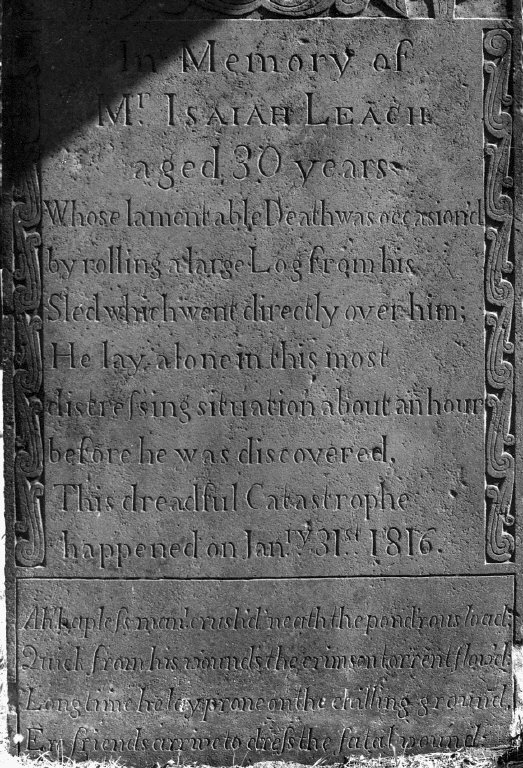 In Memory of
Mr ISAIAH LEACH
aged 30 years
Whose lamentable Death was occasion'd
by rolling a large Log from his
Sled which went directly over him;
He lay alone in this most
distreſsing situation about an hour
before he was discovered.
This dreadful Catastrophe
happened on Janry 31st 1816.
Ah hapleſs man! crush'd 'neath the pond'rous load;
Quick from his wounds the crimson torrent flow'd
Long time he lay prone on the chilling ground,
Er, friends arrive to dreſs the fatal wound